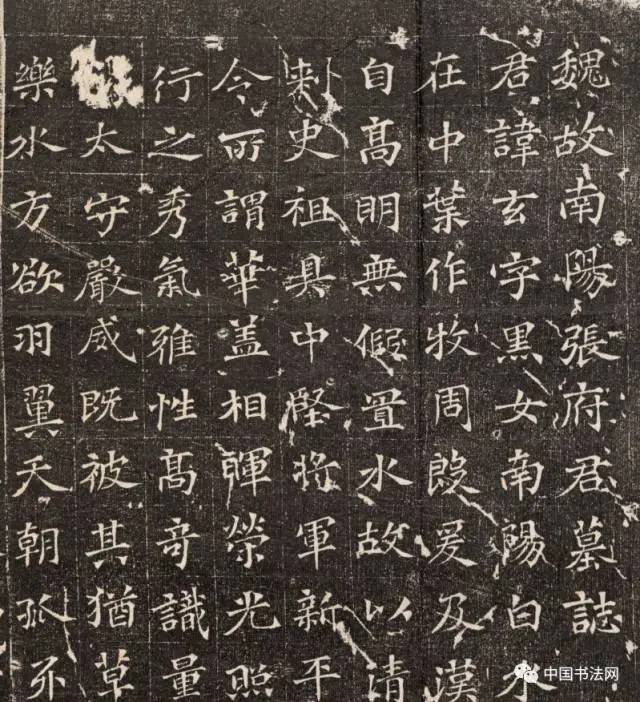 魏故南陽張府君墓誌
君諱玄字黑女南陽白水
在中葉作牧周殷爰及漢
自髙明無假置水故以清
刺史祖具中堅將軍新平
令所謂華盖相暉榮光照
行之秀氣雅性髙竒識量
太守嚴威既被其猶草
樂水方欲羽翼天朝抓牙
中国书法网